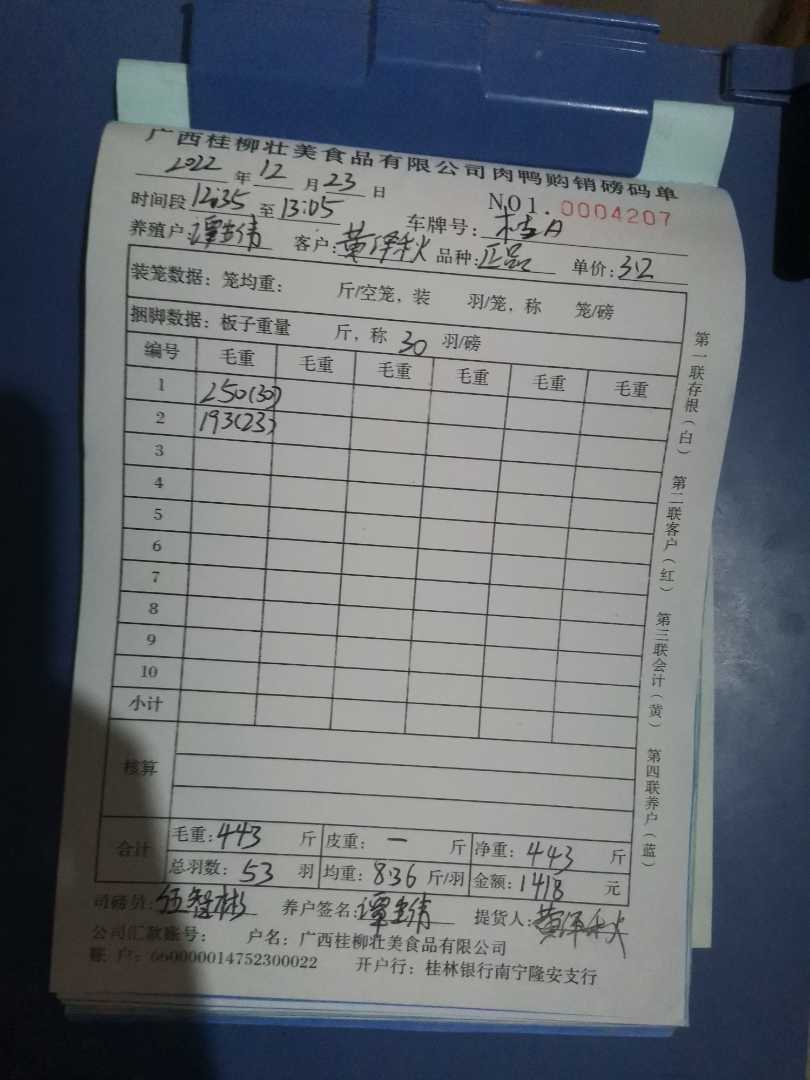 广西桂柳壮美食品有限公司肉鸭购销磅码单
2022年12月23日 NO1.0004207
时间段12:35至13:05 车牌号: A
养殖户: 谭 客户:黄泽秋 品种:正品 单价:3.2
装笼数据: 笼均重: 斤/空笼, 装 羽/笼, 称 笼/磅
捆脚数据: 板子重量 斤, 称 30 羽/磅
编号 毛重 毛重 毛重 毛重 毛重 毛重
1 250(30)
2 193(23)
3
4
5
6
7
8
9
10
小计
核算
合计 毛重:443 斤 皮重: — 斤 净重: 443 斤
总羽数: 53 羽 均重: 8.36 斤/羽 金额: 1418 元
司磅员:伍智彬 养户签名: 谭 提货人:黄泽秋
公司汇款账号: 户名: 广西桂柳壮美食品有限公司
账 户: 660000014752300022 开户行: 桂林银行南宁隆安支行
第一联存根(白) 第二联客户(红) 第三联会计(黄) 第四联养户(蓝)